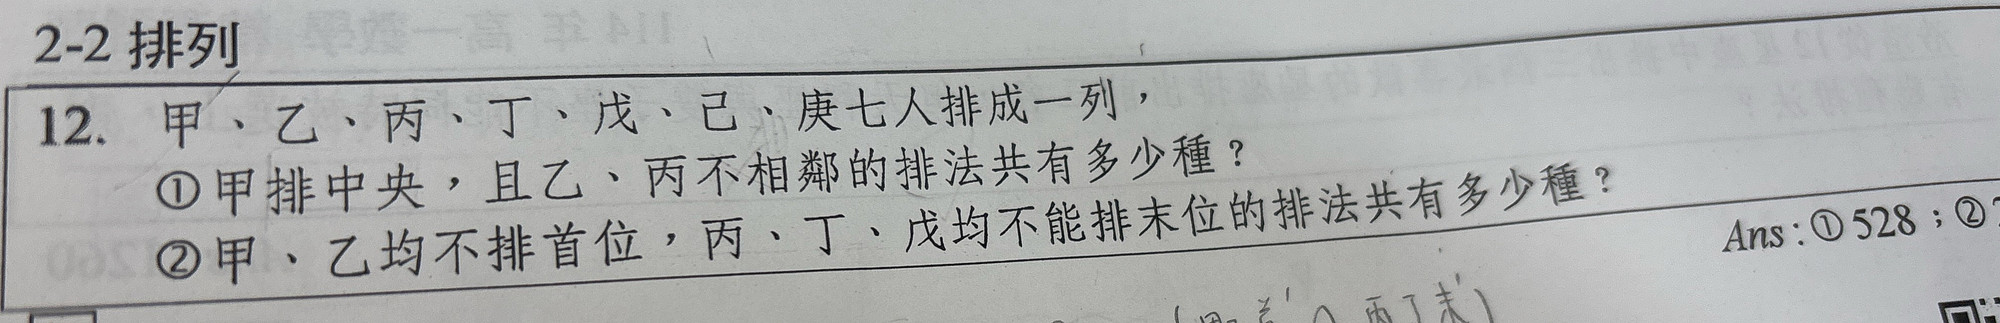 2-2 排列
12. 甲、乙、丙、丁、戊、己、庚七人排成一列，
①甲排中央，且乙、丙不相鄰的排法共有多少種？
②甲、乙均不排首位，丙、丁、戊均不能排末位的排法共有多少種？
Ans：①528；②